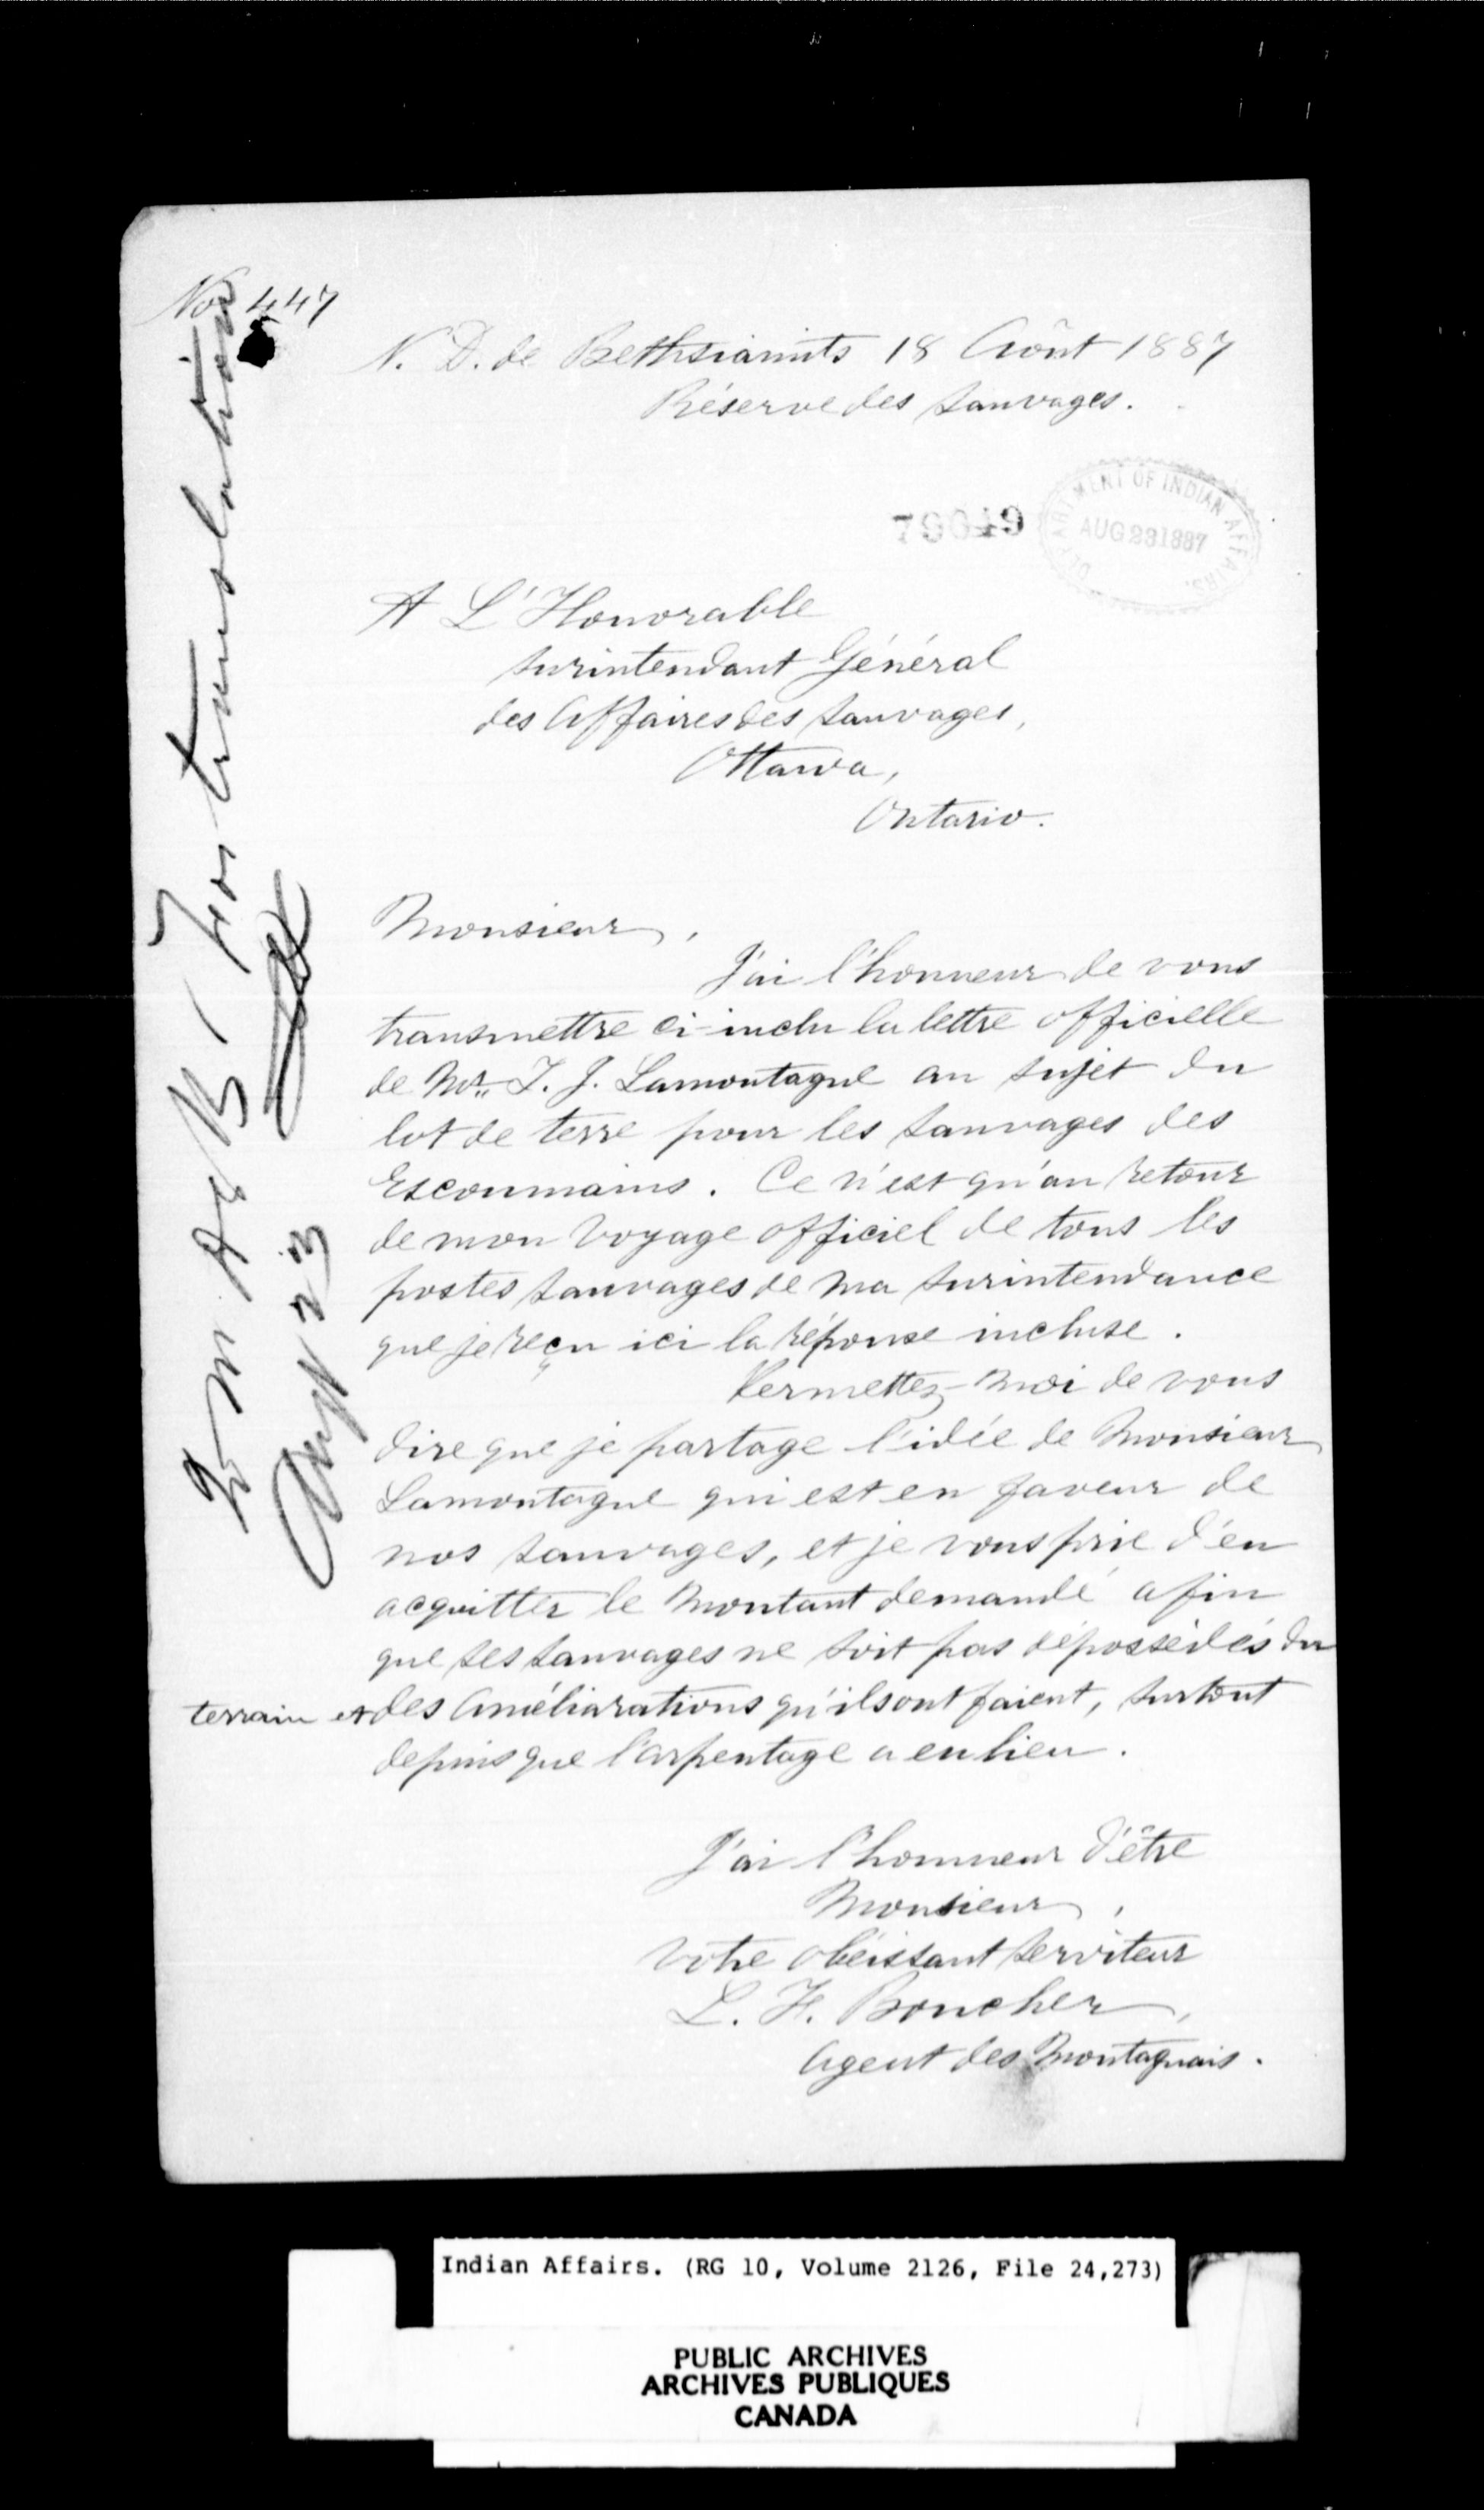 No 447
N. D. de Bethsiamits 18 Août 1887
Réserve des Sauvages.
79049
DEPARTMENT OF INDIAN AFFAIRS.
AUG 23 1887
A L'Honorable
Surintendant Général
des Affaires des Sauvages,
Ottawa,
Ontario.
Monsieur,
J'ai l'honneur de vous
transmettre ci-inclu la lettre officielle
de Mr. T. J. Lamontagne au sujet du
lot de terre pour les Sauvages des
Escoumains. Ce n'est qu'au retour
de mon voyage officiel de tous les
postes Sauvages de ma Surintendance
que je reçu ici la réponse incluse.
Permettez-moi de vous
dire que je partage l'idée de Monsieur
Lamontagne qui est en faveur de
nos Sauvages, et je vous prie d'en
acquitter le montant demandé afin
que ses Sauvages ne soit pas dépossédés du
terrain et des améliarations qu'ils ont faient, surtout
depuis que l'arpentage a eu lieu.
J'ai l'honneur d'être
Monsieur,
Votre obéissant Serviteur
L. F. Boucher,
Agent des Montagnais.
For translation
Augt 23
Indian Affairs. (RG 10, Volume 2126, File 24,273)
PUBLIC ARCHIVES
ARCHIVES PUBLIQUES
CANADA